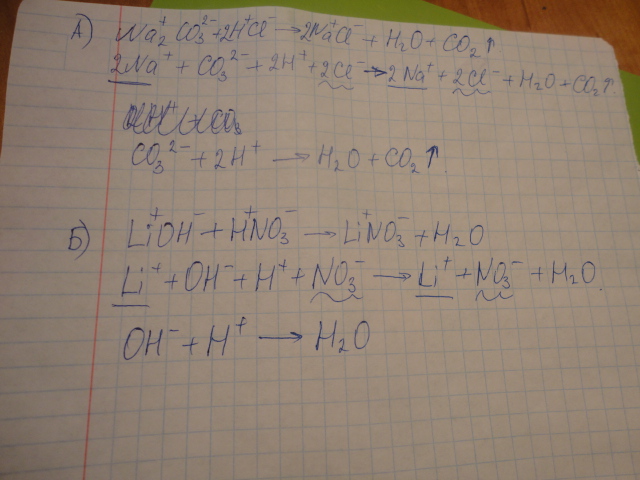 А) Na₂⁺CO₃²⁻+2H⁺Cl⁻→2Na⁺Cl⁻+H₂O+CO₂↑
2Na⁺+CO₃²⁻+2H⁺+2Cl⁻→2Na⁺+2Cl⁻+H₂O+CO₂↑
CO₃²⁻+2H⁺→H₂O+CO₂↑
Б) Li⁺OH⁻+H⁺NO₃⁻→Li⁺NO₃⁻+H₂O
Li⁺+OH⁻+H⁺+NO₃⁻→Li⁺+NO₃⁻+H₂O.
OH⁻+H⁺→H₂O